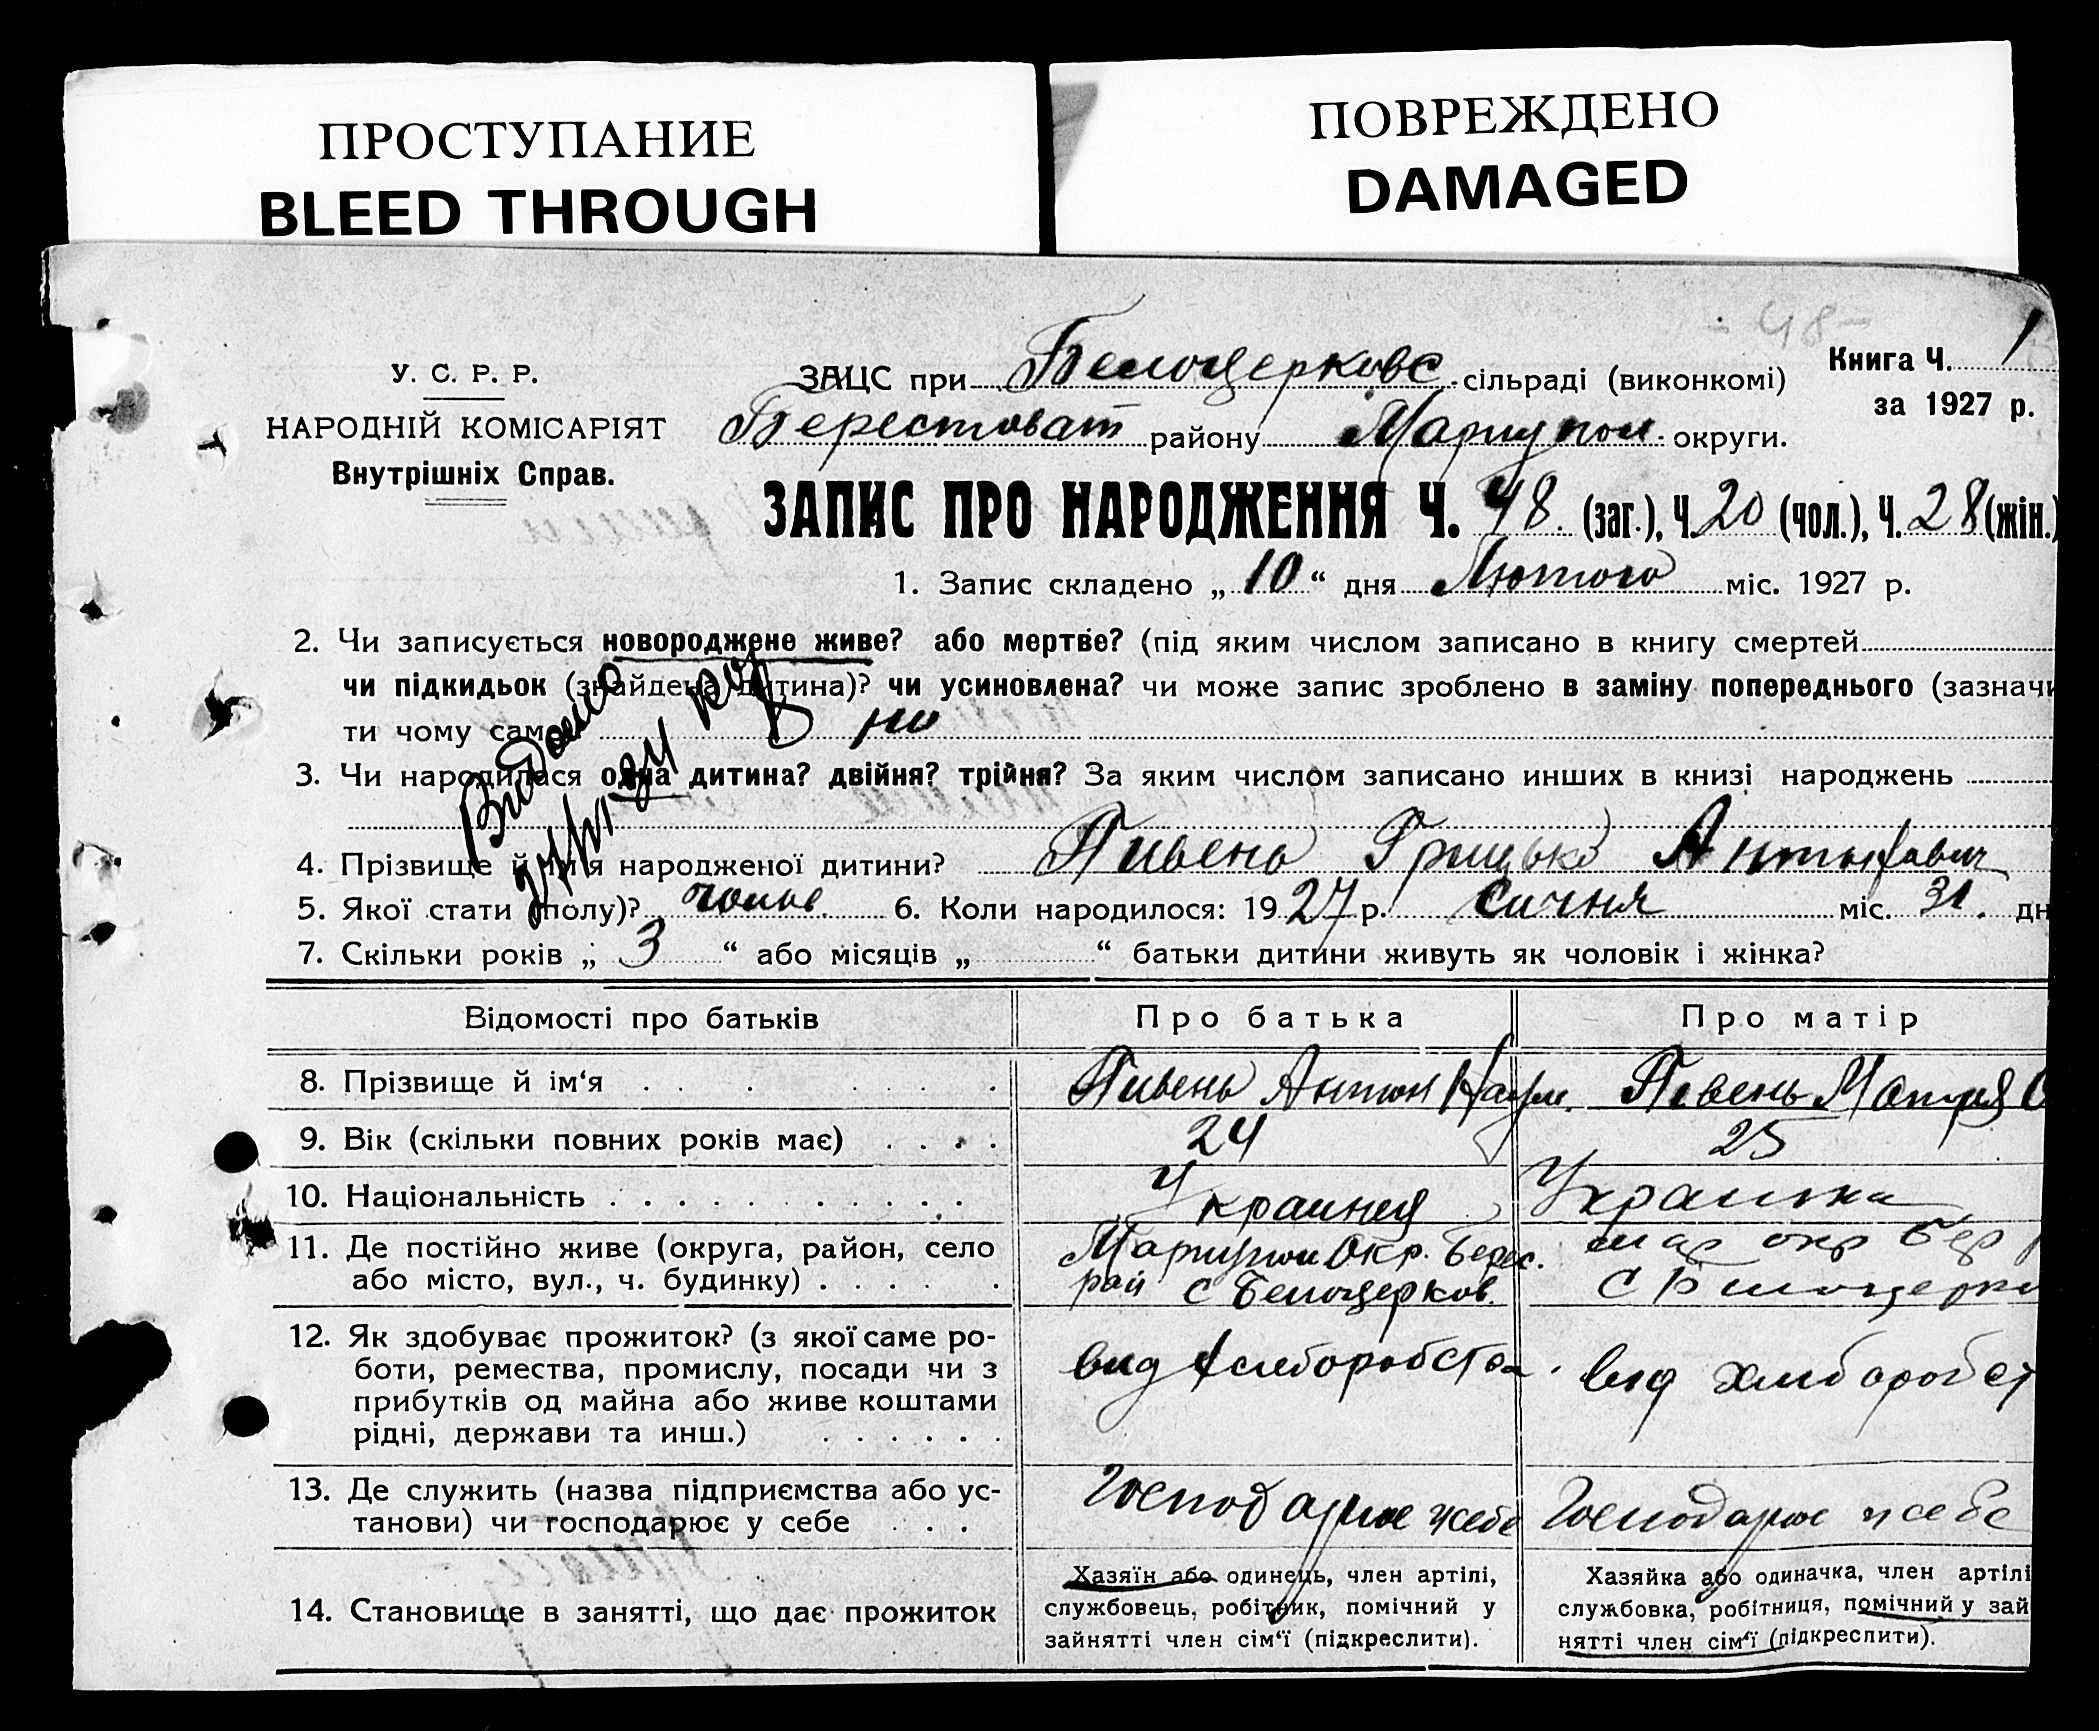 ПРОСТУПАНИЕ
BLEED THROUGH
ПОВРЕЖДЕНО
DAMAGED
- 48 -
У. С. Р. Р.
НАРОДНІЙ КОМІСАРІЯТ
Внутрішніх Справ.
ЗАЦС при Белоцерковс. сільраді (виконкомі)
Книга Ч. 1
за 1927 р.
Берестоват району Мариупол. округи.
ЗАПИС ПРО НАРОДЖЕННЯ Ч. 48. (заг.), Ч. 20 (чол.), Ч. 28 (жін.)
1. Запис складено „ 10 “ дня Лютого міс. 1927 р.
2. Чи записується новороджене живе? або мертве? (під яким числом записано в книгу смертей
чи підкидьок (знайдена дитина)? чи усиновлена? чи може запис зроблено в заміну попереднього (зазначи
ти чому саме
3. Чи народилася одна дитина? двійня? трійня? За яким числом записано инших в книзі народжень
Видано
4. Прізвище й ім'я народженої дитини? Пивень Грицько Антонович
5. Якої стати (полу)? чолов. 6. Коли народилося: 1927 р. Сичня міс. 31. дн
7. Скільки років „ 3 “ або місяців „ “ батьки дитини живуть як чоловік і жінка?
Відомості про батьків Про батька Про матір
8. Прізвище й ім‘я Пивень Антон Наум. Пивень Мотря О
9. Вік (скільки повних років має) 24 25
10. Національність Украинец Украинка
11. Де постійно живе (округа, район, село Мариупол Окр. Берес. мар окр Бер р
або місто, вул., ч. будинку) рай с Белоцерков. с Белоцерко
12. Як здобуває прожиток? (з якої саме ро-
боти, ремества, промислу, посади чи з вид хлеборобства. вид хлиборобст
прибутків од майна або живе коштами
рідні, держави та инш.)
13. Де служить (назва підприємства або ус- Господарює у себе Господарює у себе
танови) чи господарює у себе
14. Становище в занятті, що дає прожиток
Хазяїн або одинець, член артілі,
службовець, робітник, помічний у
зайнятті член сім‘ї (підкреслити).
Хазяйка або одиначка, член артілі
службовка, робітниця, помічний у зай
нятті член сім‘ї (підкреслити).